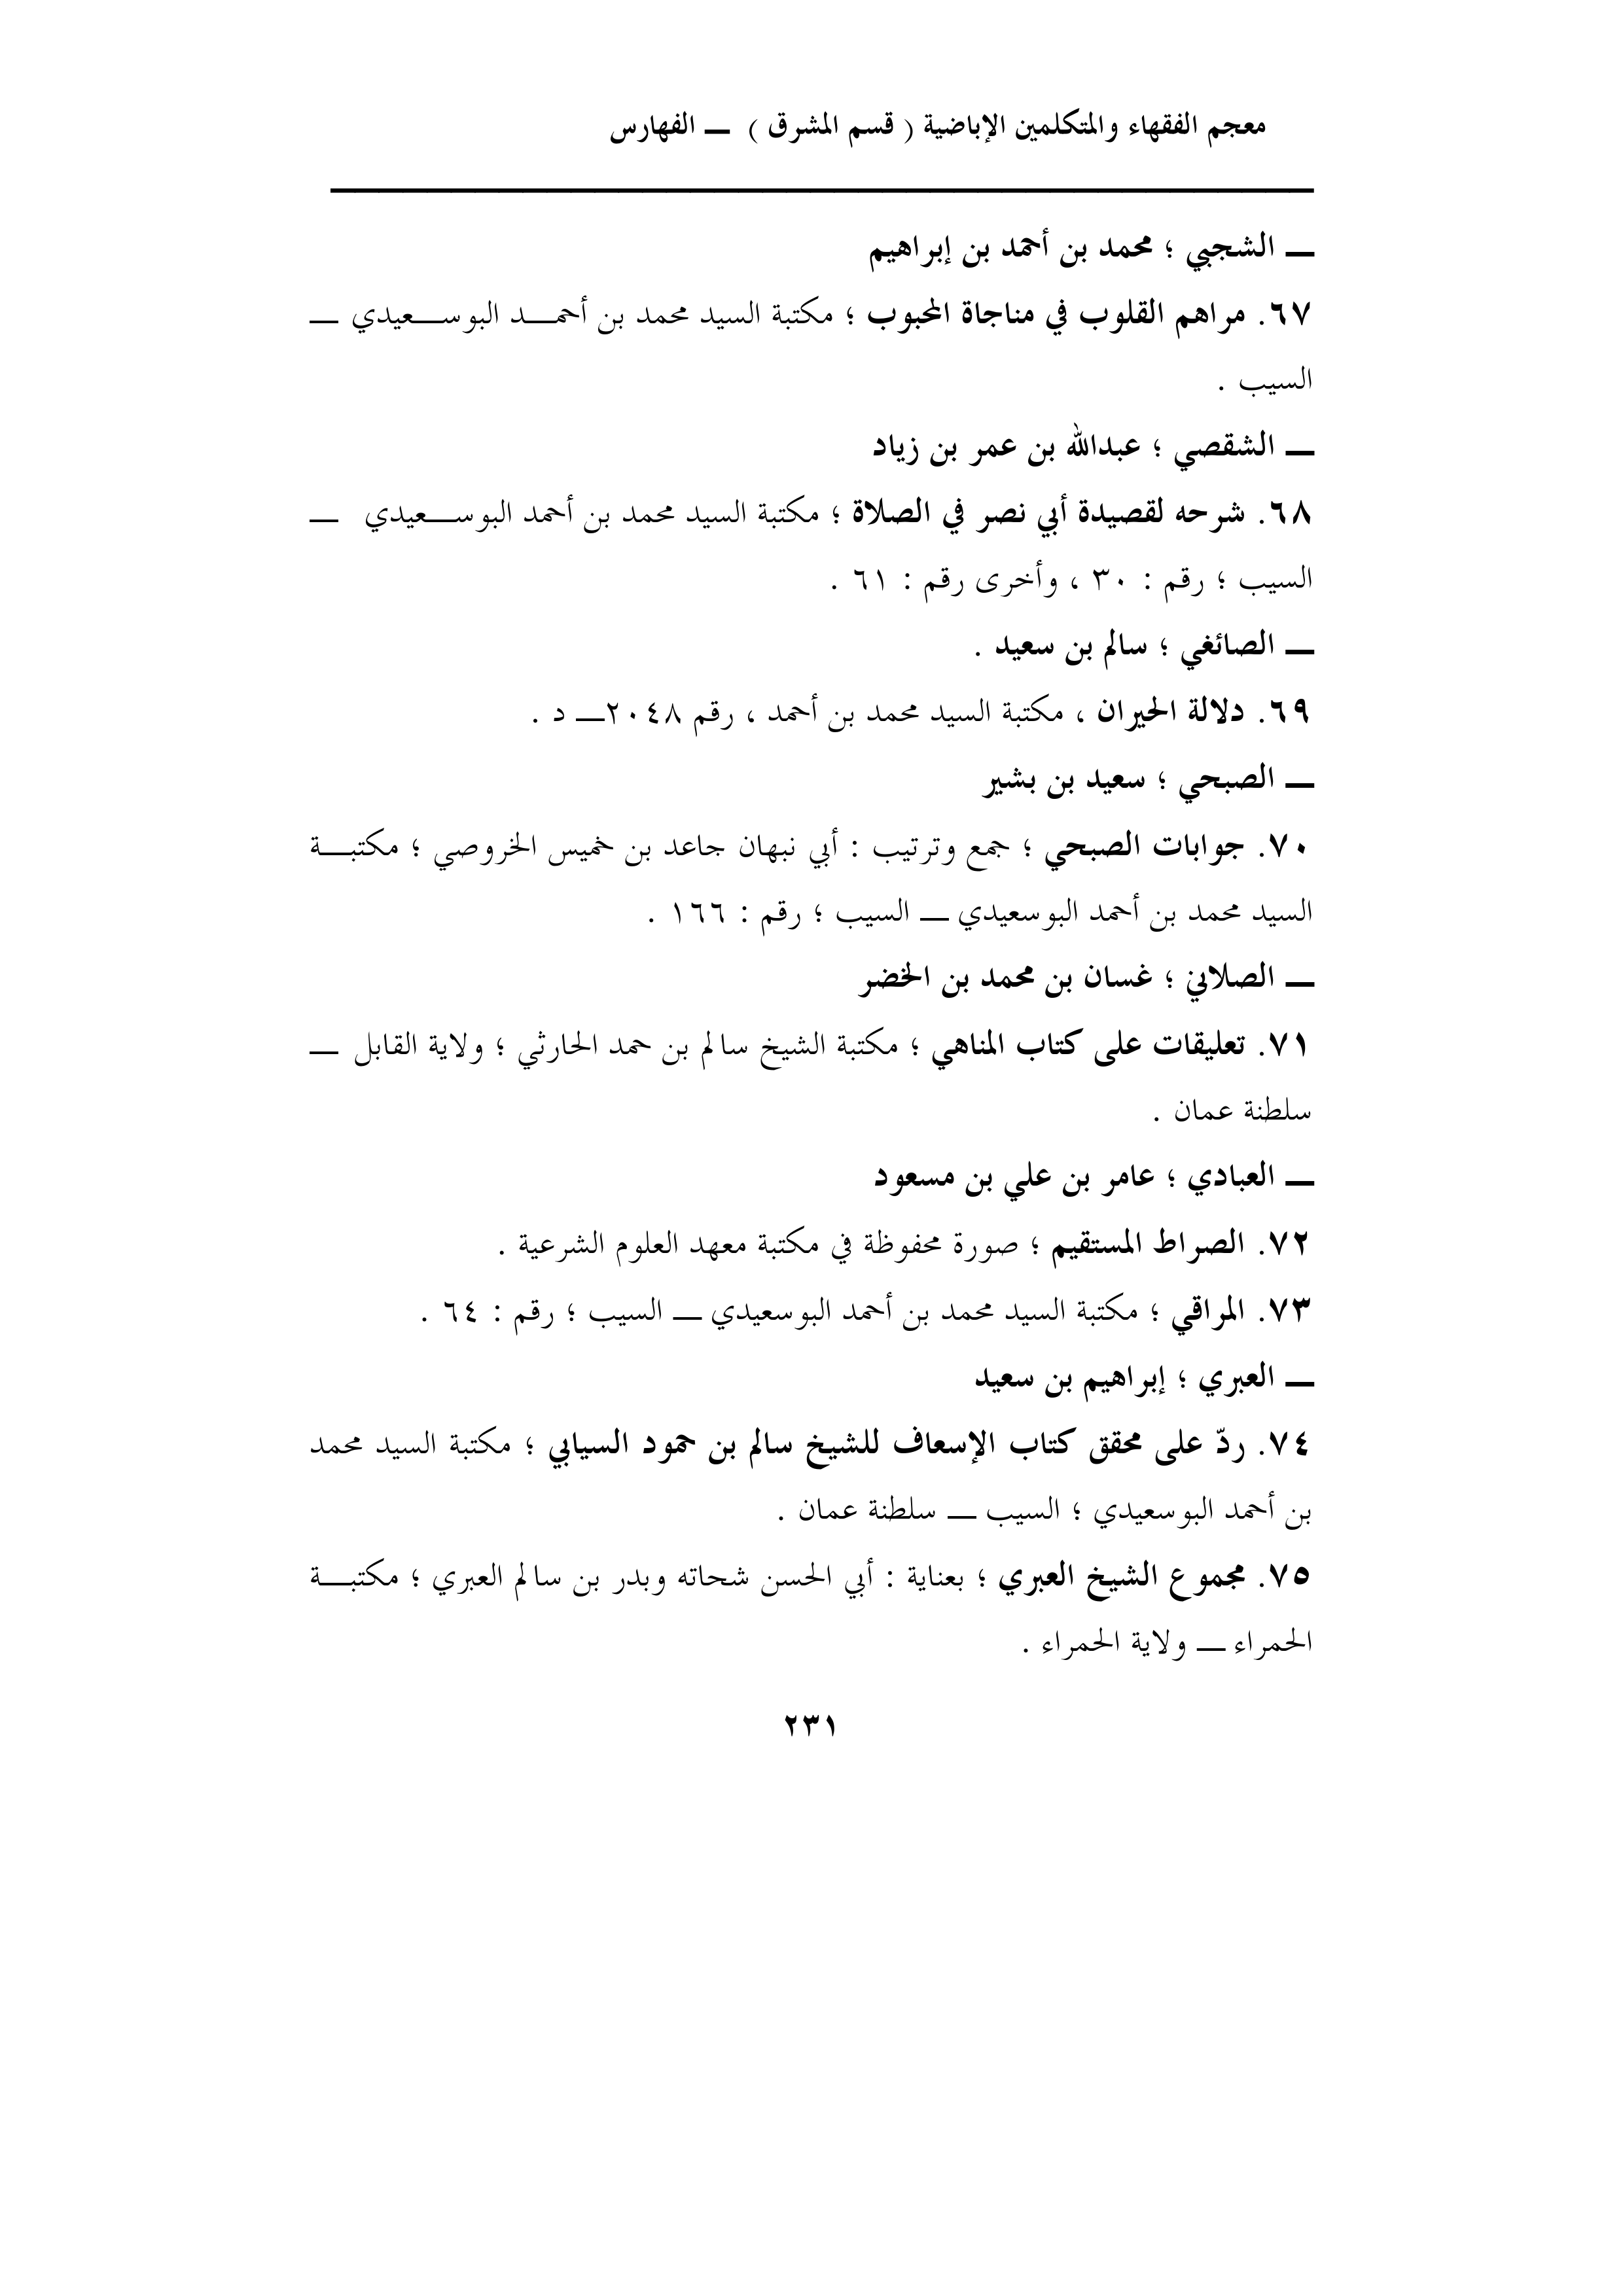 معجم الفقهاء والمتكلمين الإباضية ( قسم المشرق ) ـــ الفهارس
ـــ الشجبي ؛ محمد بن أحمد بن إبراهيم
٦٧. مراهم القلوب في مناجاة المحبوب ؛ مكتبة السيد محمد بن أحمـــد البوســـعيدي ـــ
السيب .
ـــ الشقصي ؛ عبدالله بن عمر بن زياد
٦٨. شرحه لقصيدة أبي نصر في الصلاة ؛ مكتبة السيد محمد بن أحمد البوســـعيدي ـــ
السيب ؛ رقم : ٣٠ ، وأخرى رقم : ٦١ .
ـــ الصائغي ؛ سالم بن سعيد .
٦٩. دلالة الحيران ، مكتبة السيد محمد بن أحمد ، رقم ٢٠٤٨ـــ د .
ـــ الصبحي ؛ سعيد بن بشير
٧٠. جوابات الصبحي ؛ جمع وترتيب : أبي نبهان جاعد بن خميس الخروصي ؛ مكتبـــة
السيد محمد بن أحمد البوسعيدي ـــ السيب ؛ رقم : ١٦٦ .
ـــ الصلاني ؛ غسان بن محمد بن الخضر
٧١. تعليقات على كتاب المناهي ؛ مكتبة الشيخ سالم بن حمد الحارثي ؛ ولاية القابل ـــ
سلطنة عمان .
ـــ العبادي ؛ عامر بن علي بن مسعود
٧٢. الصراط المستقيم ؛ صورة محفوظة في مكتبة معهد العلوم الشرعية .
٧٣. المراقي ؛ مكتبة السيد محمد بن أحمد البوسعيدي ـــ السيب ؛ رقم : ٦٤ .
ـــ العبري ؛ إبراهيم بن سعيد
٧٤. ردّ على محقق كتاب الإسعاف للشيخ سالم بن حمود السيابي ؛ مكتبة السيد محمد
بن أحمد البوسعيدي ؛ السيب ـــ سلطنة عمان .
٧٥. مجموع الشيخ العبري ؛ بعناية : أبي الحسن شحاته وبدر بن سالم العبري ؛ مكتبـــة
الحمراء ـــ ولاية الحمراء .
٢٣١